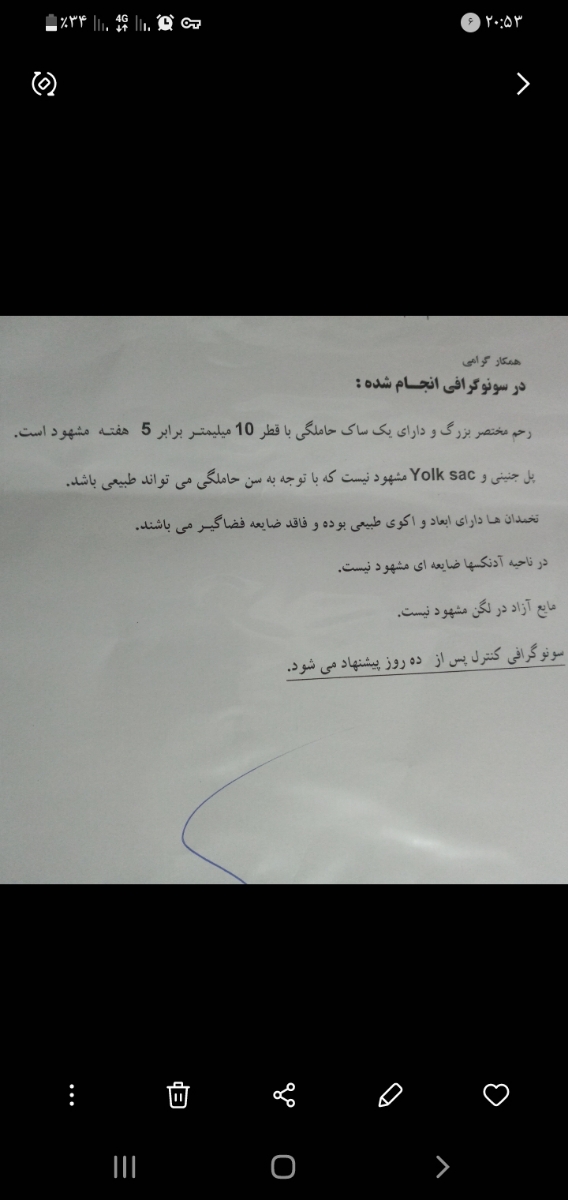 ٪۳۴ 4G ۶ ۲۰:۵۳
همکار گرامی
در سونوگرافی انجـام شده :
رحم مختصر بزرگ و دارای یک ساک حاملگی با قطر 10 میلیمتـر برابر 5 هفتـه مشهود است.
پل جنینی و Yolk sac مشهود نیست که با توجه به سن حاملگی می تواند طبیعی باشد.
تخمدان هـا دارای ابعاد و اکوی طبیعی بوده و فاقد ضایعه فضاگیـر می باشند.
در ناحیه آدنکسها ضایعه ای مشهود نیست.
مایع آزاد در لگن مشهود نیست.
سونوگرافی کنترل پس از ده روز پیشنهاد می شود.